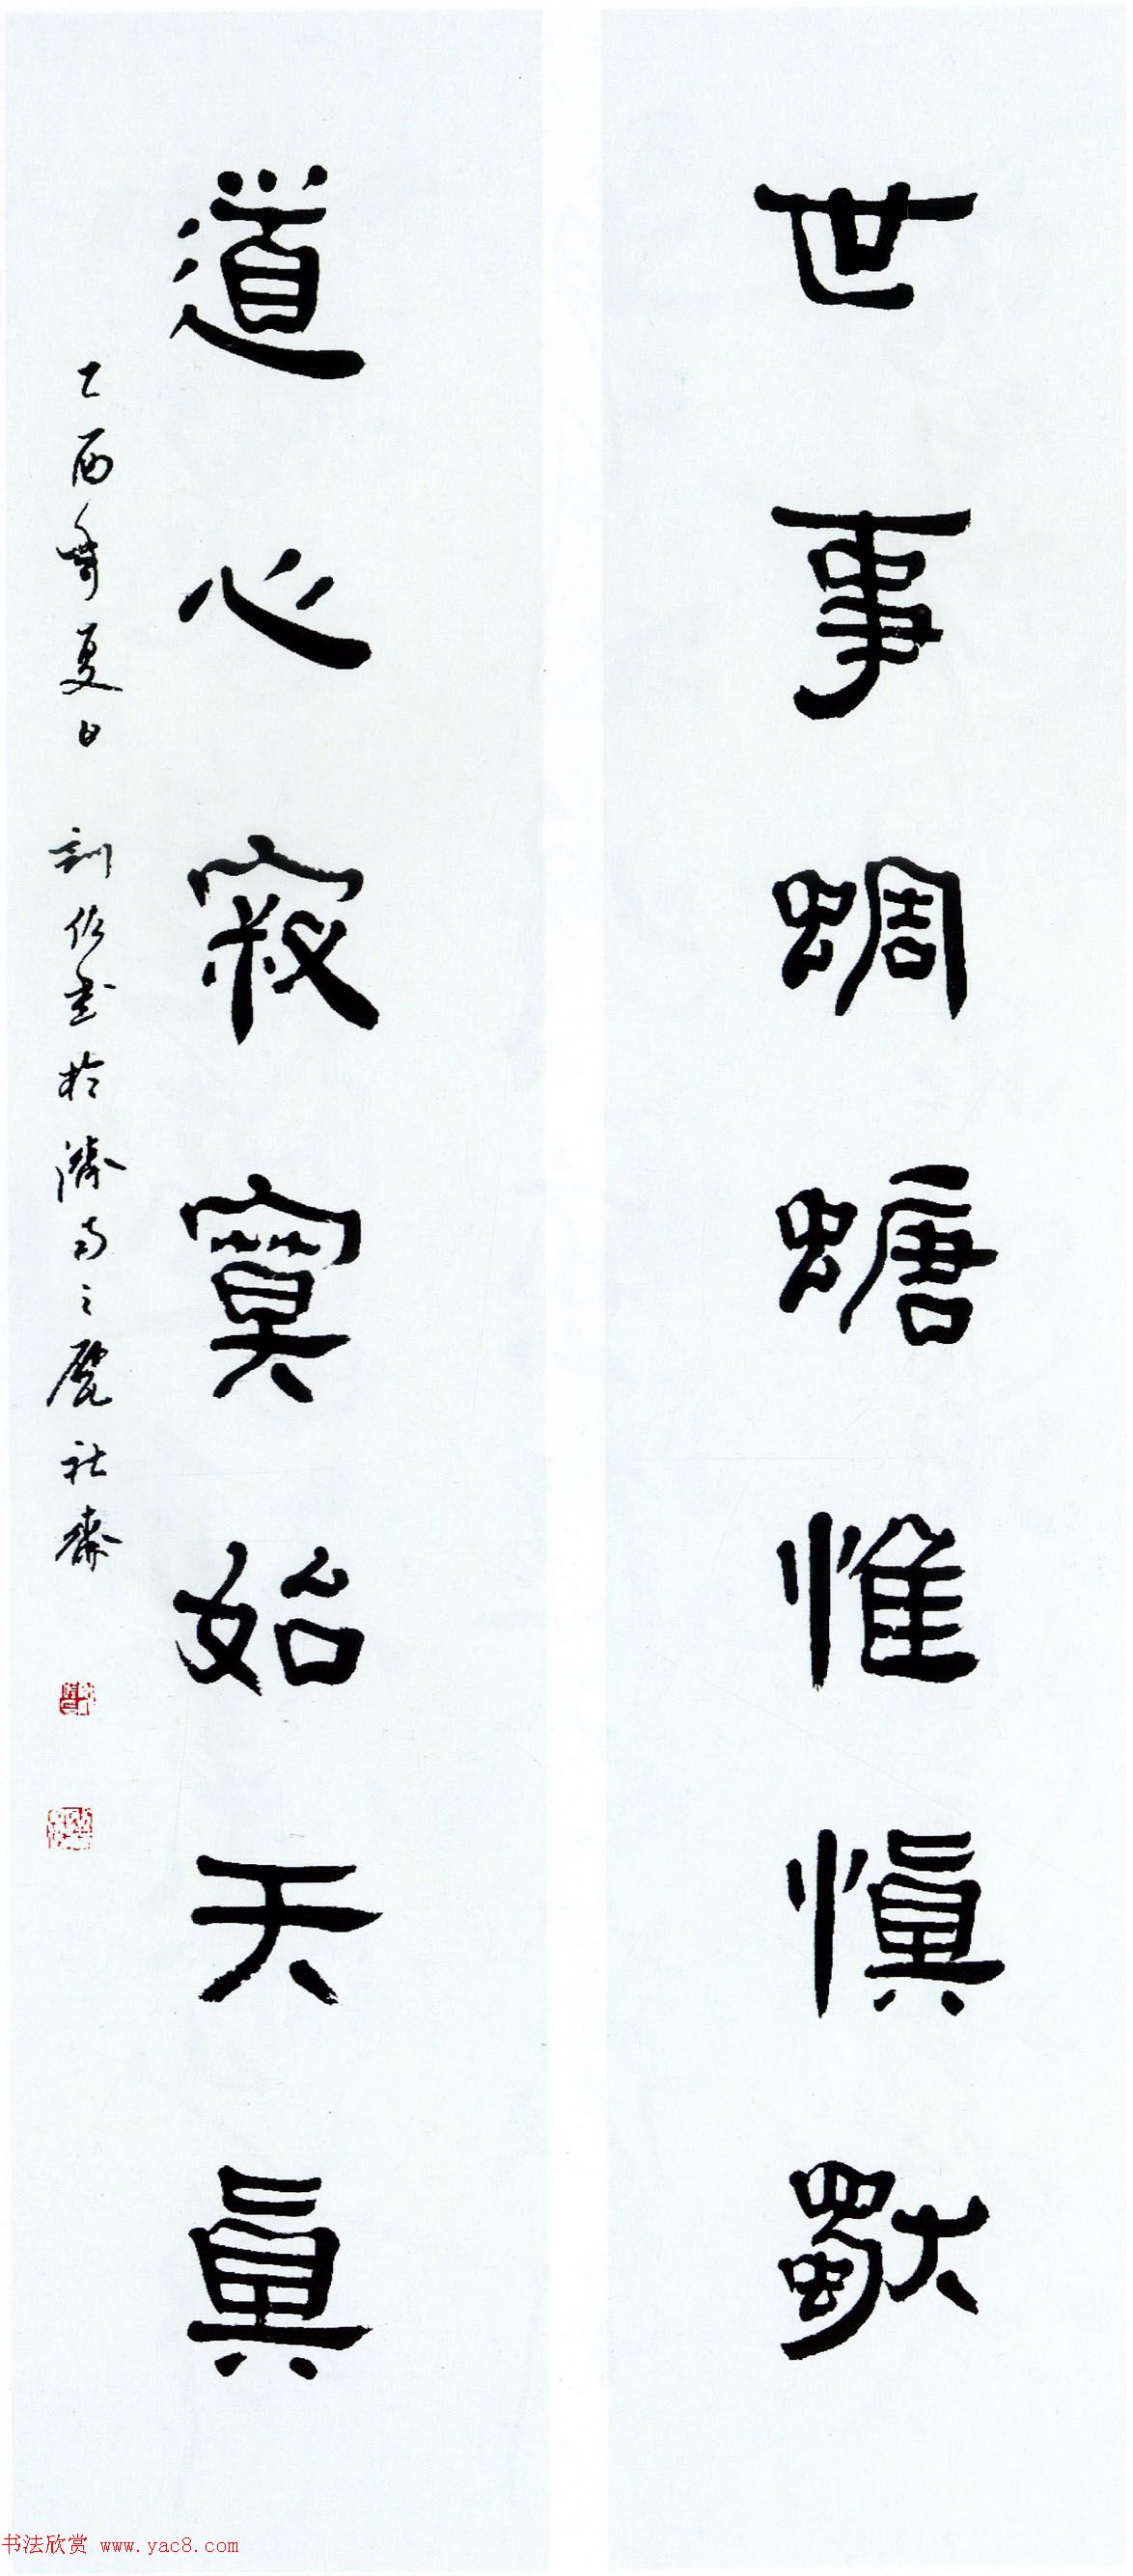 世事蜩螗惟慎獨
道心寂寞始天真
乙酉年夏日 訓佐書於濟南之甓社齋
书法欣赏 www.yac8.com